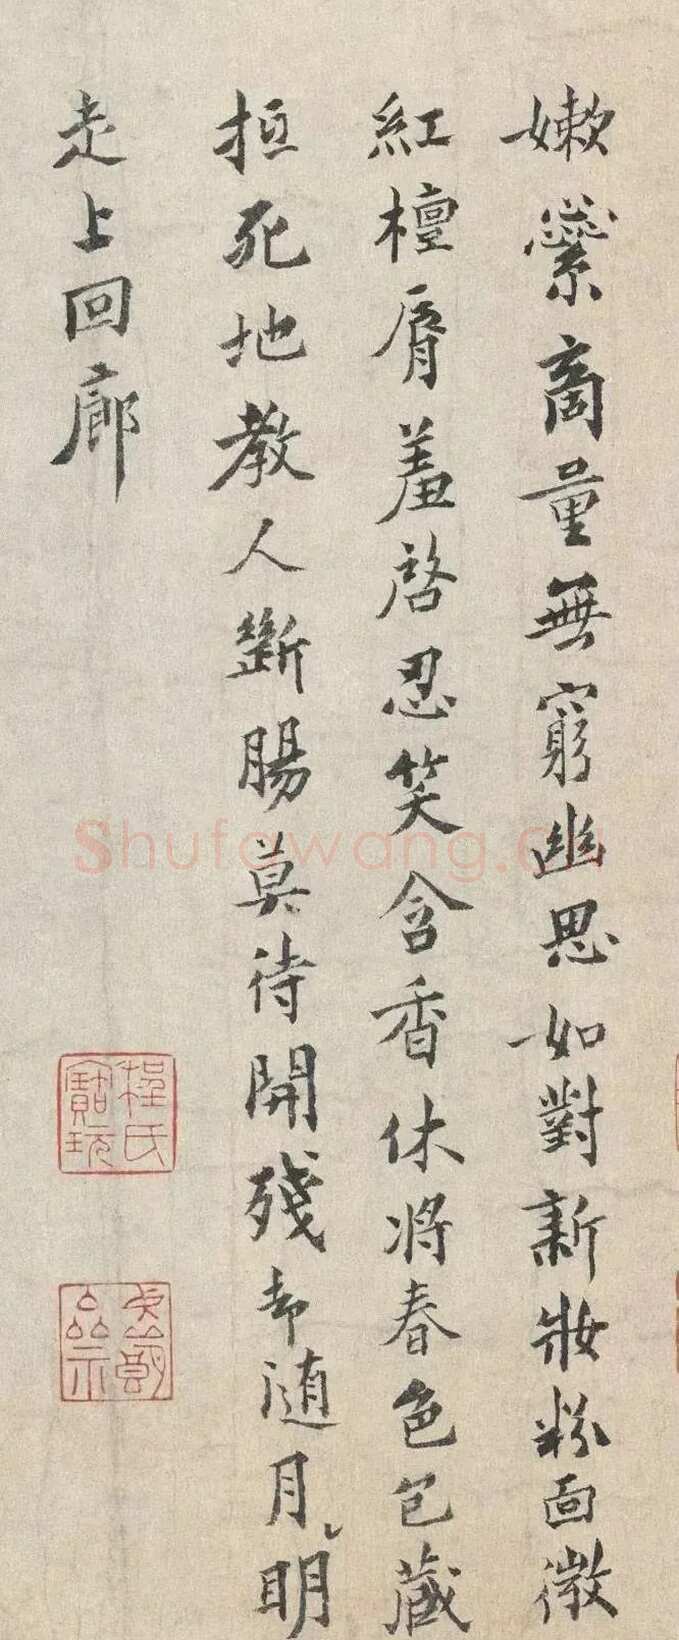 嫩蘂商量無窮幽思如對新妝粉面微
紅檀脣羞啓忍笑含香休將春色包藏
抵死地教人斷腸莫待開殘却隨月明
走上回廊
程氏寶玩
Shufawang.cn